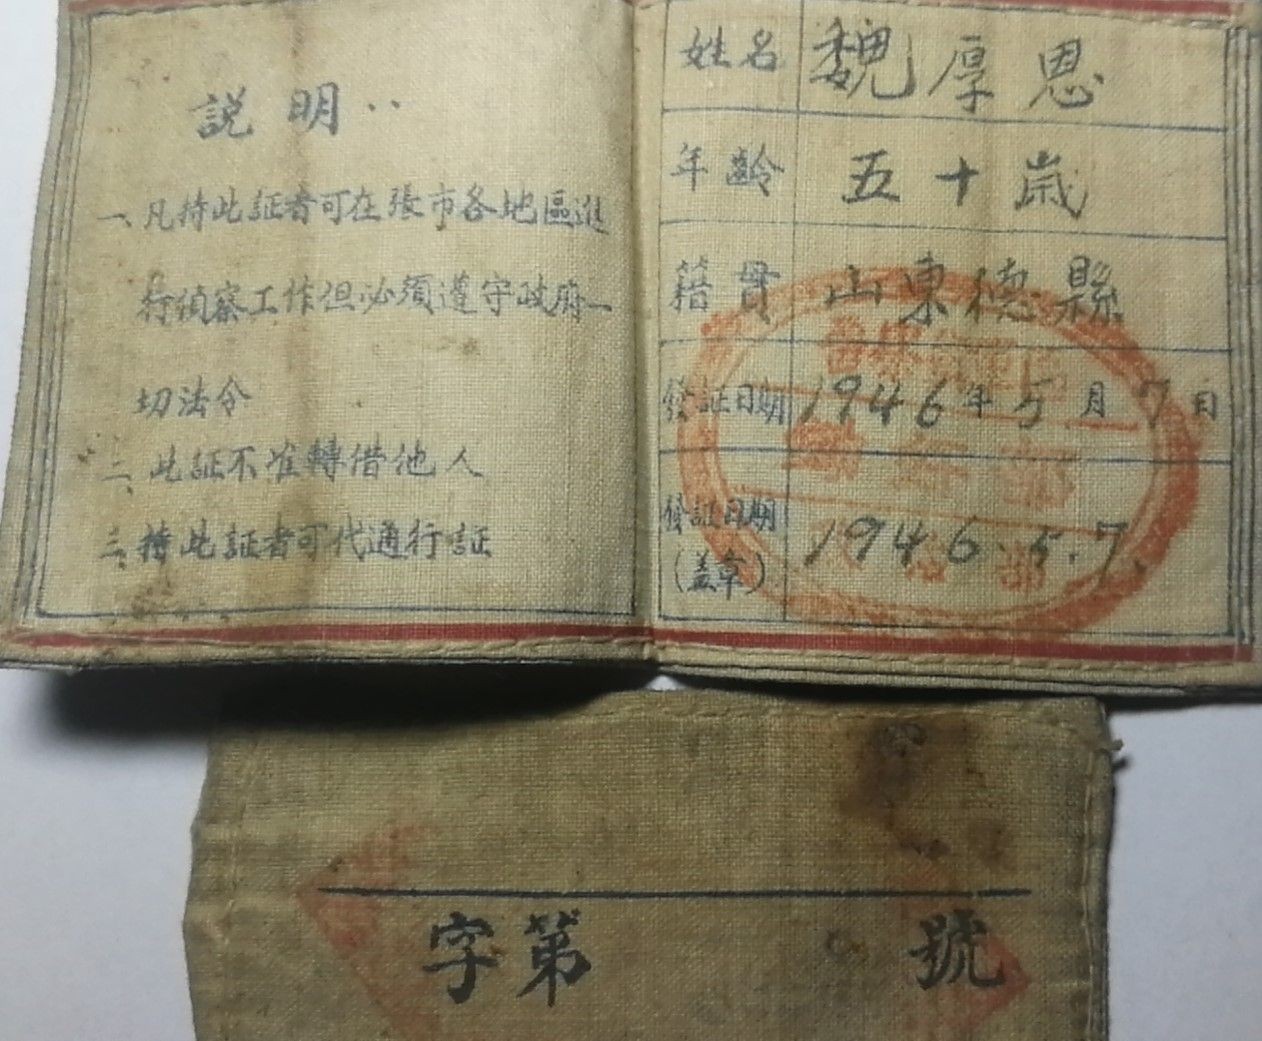 説明：
一、凡持此証者可在張市各地區進
行偵察工作但必須遵守政府一
切法令
二、此証不准轉借他人
三、持此証者可代通行証
姓名 魏厚恩
年齡 五十嵗
籍貫 山東德縣
發証日期 1946年5月7日
發証日期
(盖章) 1946.5.7.
字第 號